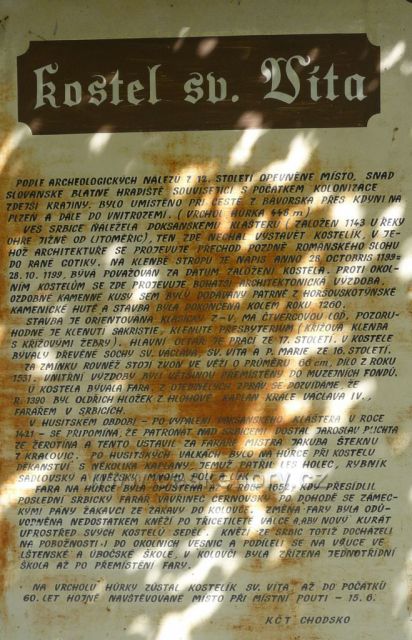 Kostel sv. Víta
PODLE ARCHEOLOGICKÝCH NÁLEZŮ Z 12. STOLETÍ OPEVNĚNÉ MÍSTO, SNAD
SLOVANSKÉ BLATNÉ HRADIŠTĚ SOUVISEJÍCÍ S POČÁTKEM KOLONIZACE
ZDEJŠÍ KRAJINY, BYLO UMÍSTĚNO PŘI CESTĚ Z BAVORSKA PŘES KDYNI NA
PLZEŇ A DÁLE DO VNITROZEMÍ. (VRCHOL HŮRKA 446 m)
VES SRBICE NÁLEŽELA DOKSANSKÉMU KLÁŠTERU (ZALOŽEN 1143 U ŘEKY
OHŘE JIŽNĚ OD LITOMĚŘIC), TEN ZDE NECHAL VYSTAVĚT KOSTELÍK, V JE-
HOŽ ARCHITEKTUŘE SE PROJEVUJE PŘECHOD POZDNĚ ROMÁNSKÉHO SLOHU
DO RANÉ GOTIKY. NA KLENBĚ STROPU JE NÁPIS ANNO 28 OCTOBRIS 1199=
28.10. 1199, BÝVÁ POVAŽOVÁN ZA DATUM ZALOŽENÍ KOSTELA. PROTI OKOL-
NÍM KOSTELŮM SE ZDE PROJEVUJE BOHATŠÍ ARCHITEKTONICKÁ VÝZDOBA,
OZDOBNÉ KAMENNÉ KUSY SEM BYLY DODÁVÁNY PATRNĚ Z HORŠOVSKOTÝNSKÉ
KAMENICKÉ HUTĚ A STAVBA BYLA DOKONČENA KOLEM ROKU 1260.
STAVBA JE ORIENTOVANÁ KLASICKY Z-V, MÁ ČTVERCOVOU LOĎ. POZORU-
HODNÉ JE KLENUTÍ SAKRISTIE, KLENUTÉ PRESBYTERIUM (KŘÍŽOVÁ KLENBA
S KŘÍŽOVÝMI ŽEBRY). HLAVNÍ OLTÁŘ JE PRACÍ ZE 17. STOLETÍ. V KOSTELE
BÝVALY DŘEVĚNÉ SOCHY SV. VÁCLAVA, SV. VÍTA A P. MARIE ZE 16. STOLETÍ.
ZA ZMÍNKU ROVNĚŽ STOJÍ ZVON VE VĚŽI O PRŮMĚRU 66 cm, DÍLO Z ROKU
1551. VNITŘNÍ VÝZDOBY BYLY VĚTŠINOU PŘEMÍSTĚNY DO MUZEJNÍCH FONDŮ.
U KOSTELA BÝVALA FARA. Z UTEDELNÝCH ZPRÁV SE DOZVÍDÁME, ŽE
R. 1390 BYL OLDŘICH HLOŽEK Z HLOHOVÉ, KAPLAN KRÁLE VÁCLAVA IV.,
FARÁŘEM V SRBICÍCH.
V HUSITSKÉM OBDOBÍ - PO VYPÁLENÍ DOKSANSKÉHO KLÁŠTERA V ROCE
1421 - SE PŘIPOMÍNÁ, ŽE PATRONÁT NAD SRBICEMI DOSTAL JAROSLAV PLICHTA
ZE ŽEROTÍNA A TENTO USTAVIL ZA FARÁŘE MISTRA JAKUBA ŠTEKNU
Z KRALOVIC. PO HUSITSKÝCH VÁLKÁCH BYLO NA HŮRCE PŘI KOSTELU
DĚKANSTVÍ S NĚKOLIKA KAPLANY, JEMUŽ PATŘIL LES HOLEC, RYBNÍK
SADLOVSKÝ A KNĚŽSKÝ
FARA NA HŮRCE BYLA OPUŠTĚNA R. 1651, KDY PŘESÍDLIL
POSLEDNÍ SRBICKÝ FARÁŘ VAVŘINEC ČERNOVSKÝ PO DOHODĚ SE ZÁMEC-
KÝMI PÁNY ŽÁKAVCI ZE ŽÁKAVY DO KOLOVČE. ZMĚNA FARY BYLA ODŮ-
VODNĚNA NEDOSTATKEM KNĚŽÍ PO TŘICETILETÉ VÁLCE A, ABY NOVÝ KURÁT
UPROSTŘED SVÝCH KOSTELŮ SEDĚL. KNĚZÍ ZE SRBIC TOTIŽ DOCHÁZEL
NA POBOŽNOSTI I DO OKOLNÍCH VESNIC A PODÍLEL SE NA VÝUCE VE
LŠTĚNSKÉ A ÚBOČSKÉ ŠKOLE, V KOLOVČI BYLA ZŘÍZENA JEDNOTŘÍDNÍ
ŠKOLA AŽ PO PŘEMÍSTĚNÍ FARY.
NA VRCHOLU HŮRKY ZŮSTAL KOSTELÍK SV. VÍTA AŽ DO POČÁTKŮ
60. LET HOJNĚ NAVŠTĚVOVANÉ MÍSTO PŘI MÍSTNÍ POUTI - 15.6.
KČT CHODSKO